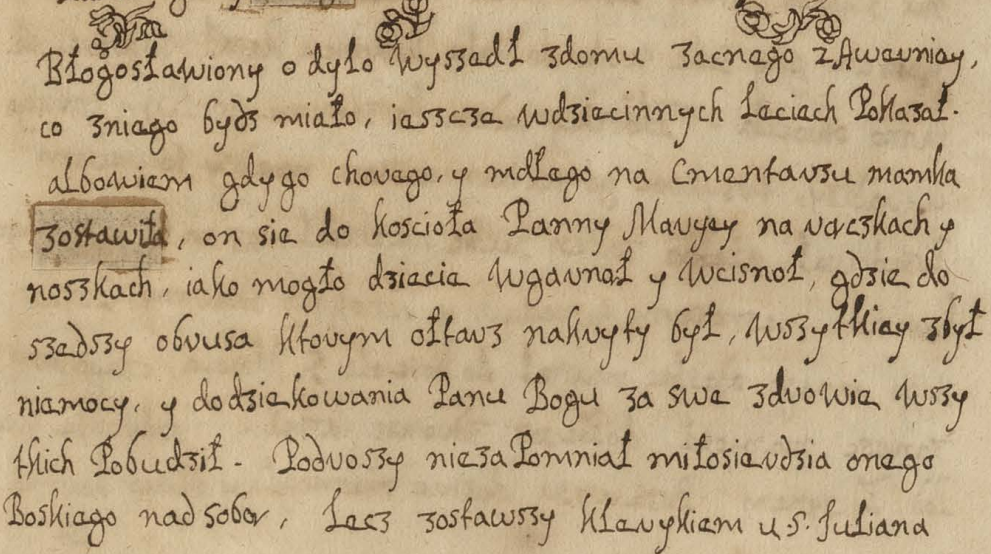 Błogosławiony o dyło wyszedł zdomu zacnego z Awerniey,
co zniego bydz miało, ieszcze wdziecinnych leciech Pokazał.
albowiem gdy go chorego, y mdłego na Cmentarzu mamka
zostawiła, on sie do kościoła Panny Maryey na rączkach y
noszkach, iako mogło dziecie wgarnoł y wcisnoł, gdzie do
szedszy obrusa ktorym ołtarz nakryty był, wszytkiey zbył
niemocy, y dodziekowania Panu Bogu za swe zdrowie wszy
tkich Pobudził. Podroszy nieza Pomniał miłosierdzia onego
Boskiego nad sobą, lecz zostawszy klerykiem u S. Juliana